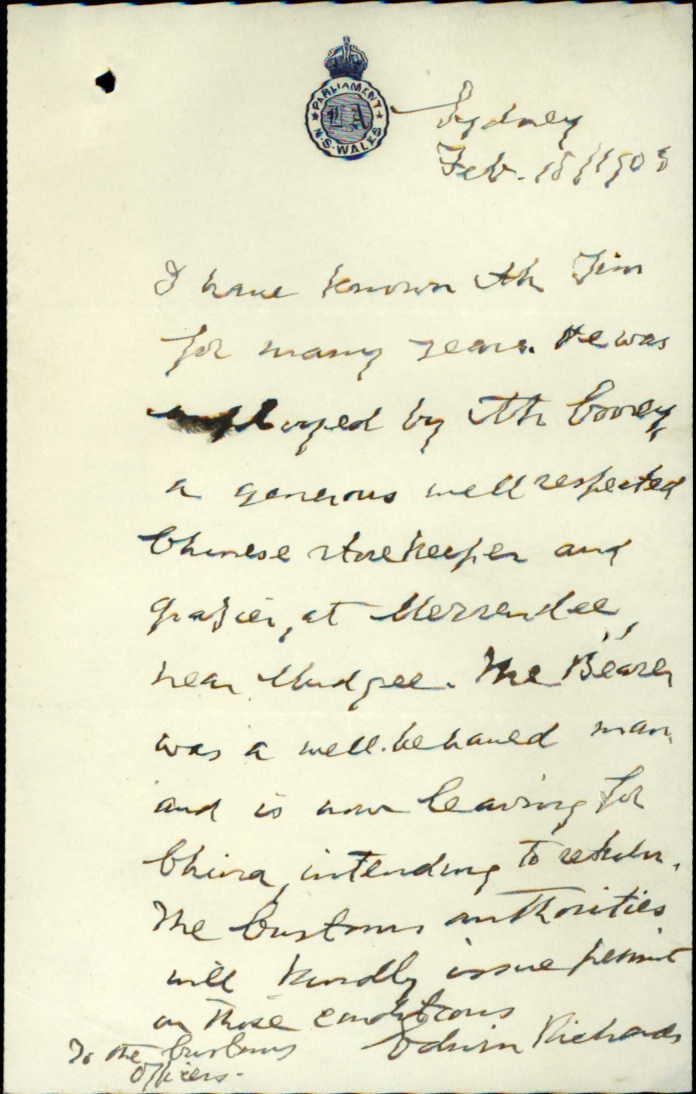 PARLIAMENT
LA
N.S. WALES
Sydney
Feb. 18/1908
I have known Ah Jim
for many years. He was
employed by Ah Cooey,
a generous well respected
Chinese storekeeper and
grazier, at Merrendee,
near Mudgee. The Bearer
was a well-behaved man
and is now leaving for
China, intending to return.
The Customs authorities
will kindly issue permit
on those conditions
Edwin Richards
To the Customs
Officers.